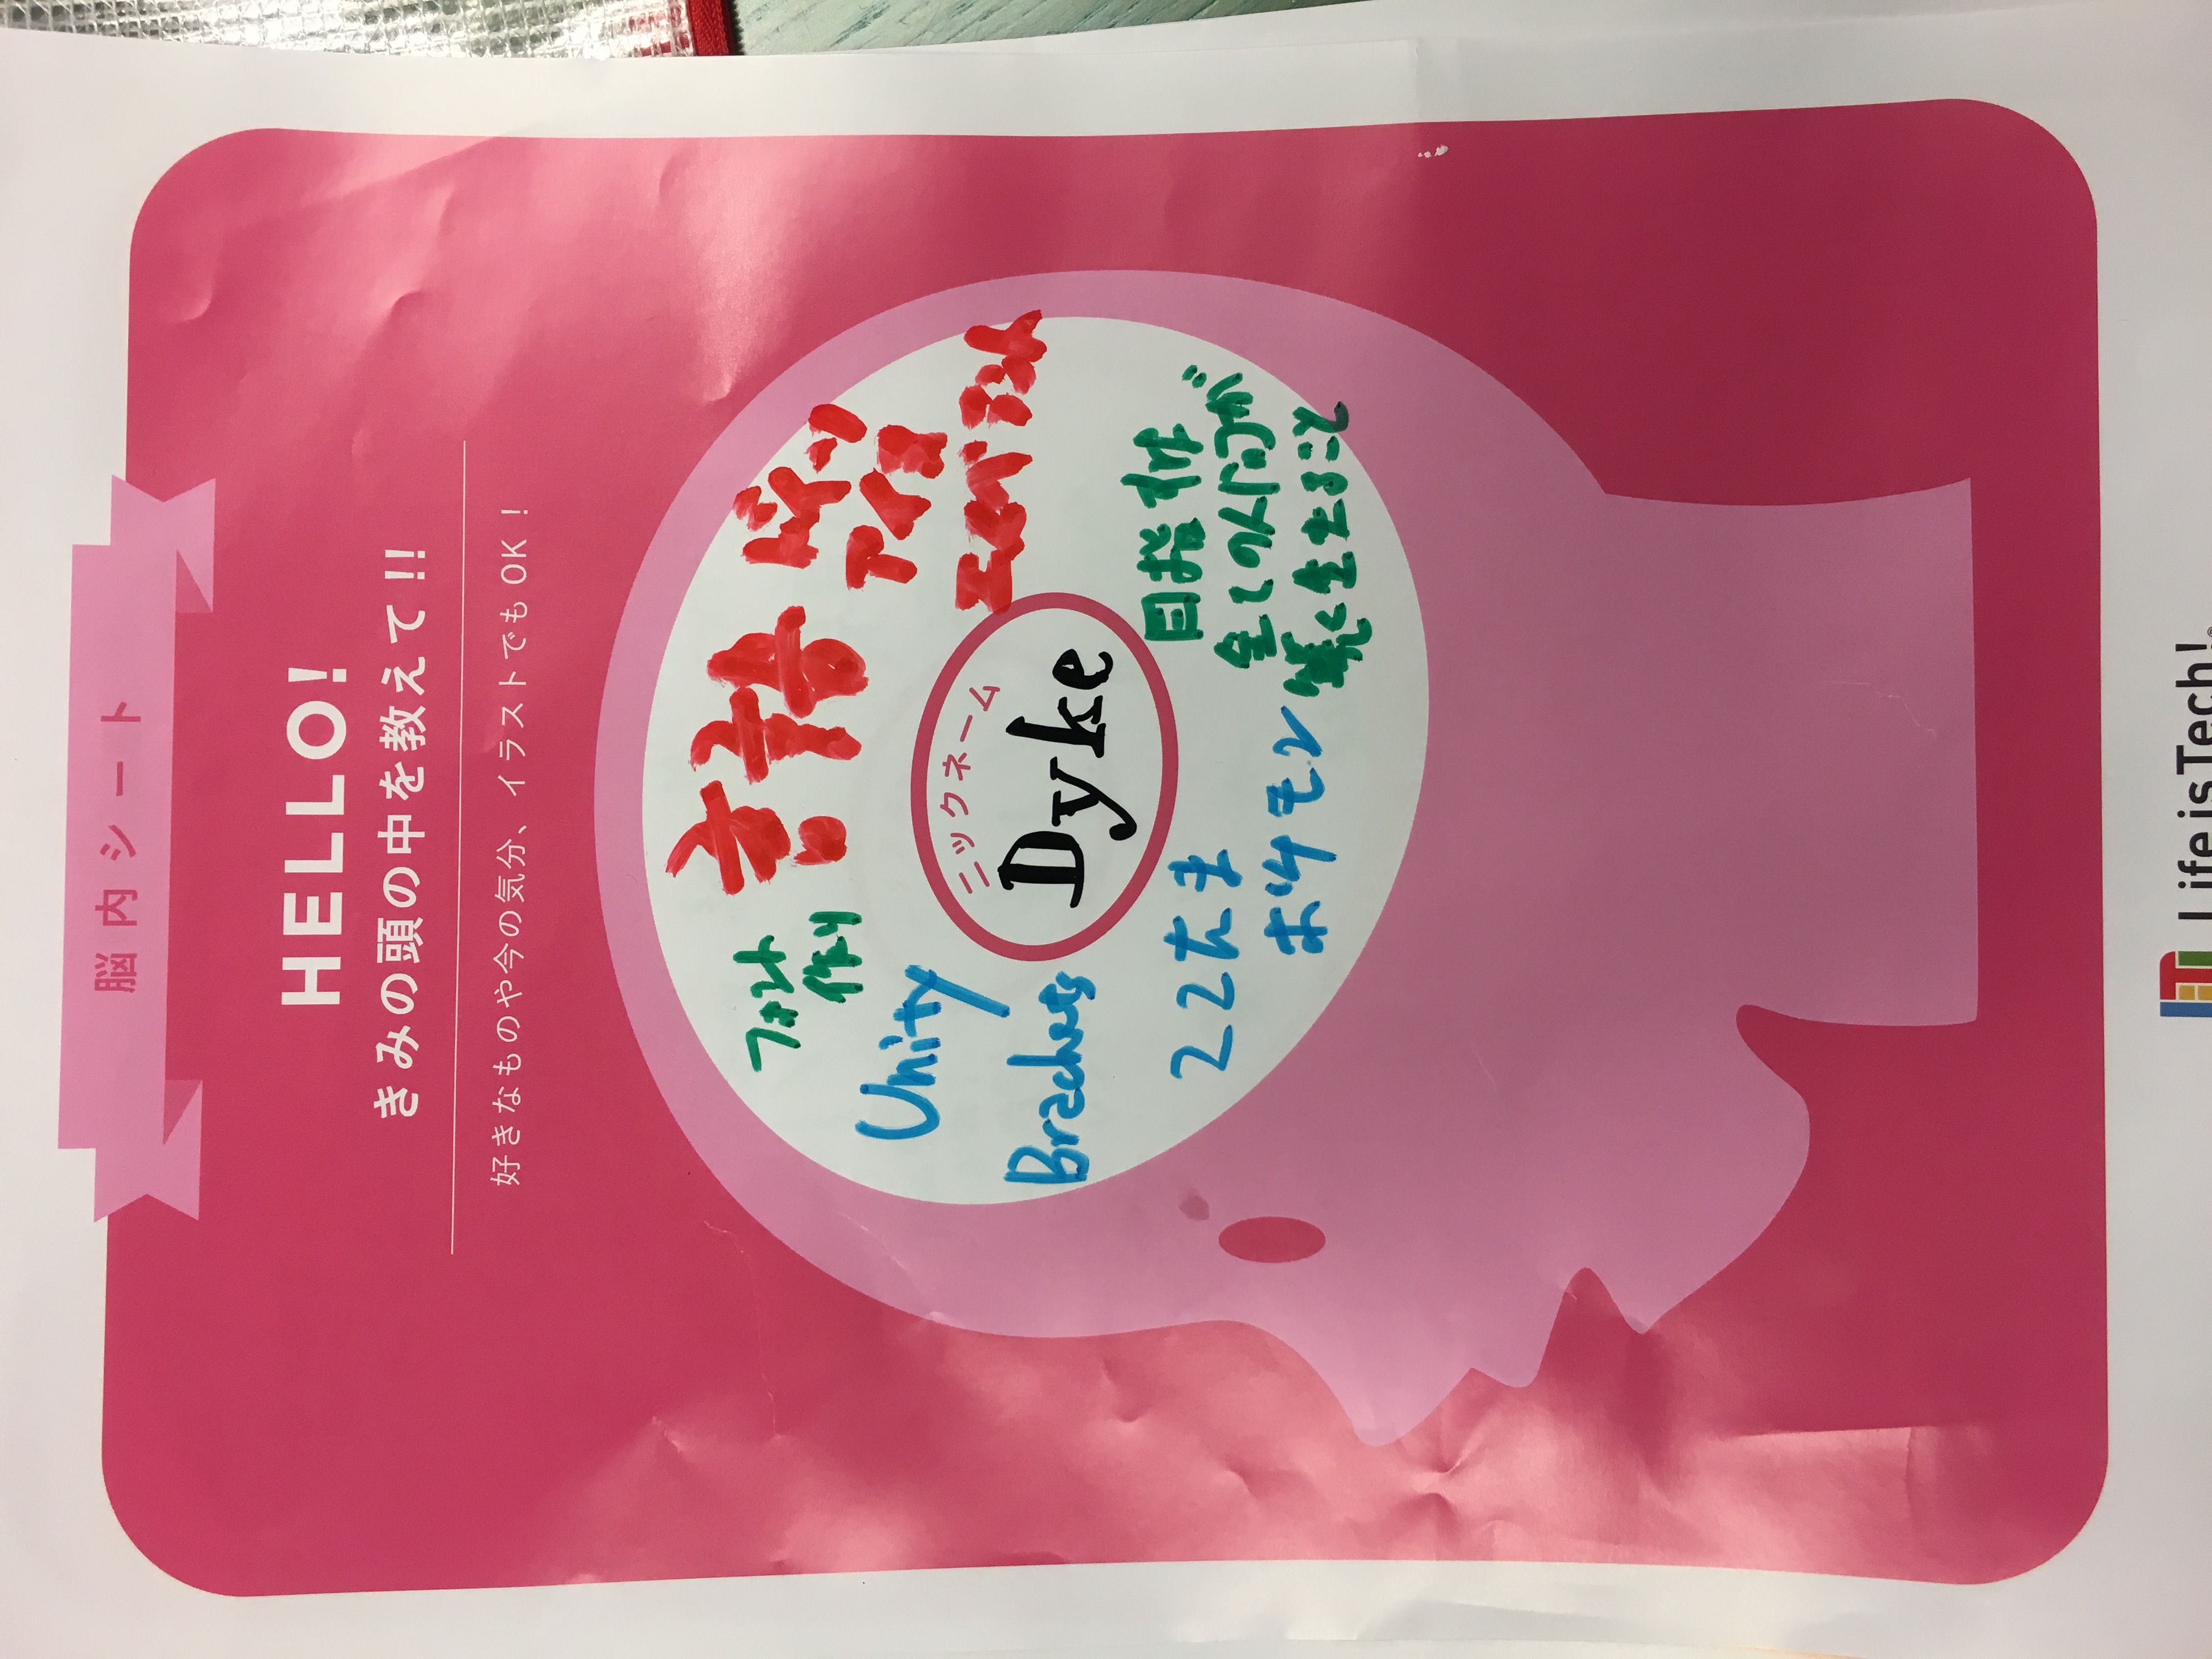 脳内シート
HELLO!
きみの頭の中を教えて!!
好きなものや今の気分、イラストでもOK！
フォント
作り
言語
ドイツ
アイヌ
エスペラント
Unity
Brackets
ニックネーム
Dyke
22たま
ポケモン
目指すは
全ての人間が
生きること
Life is Tech!